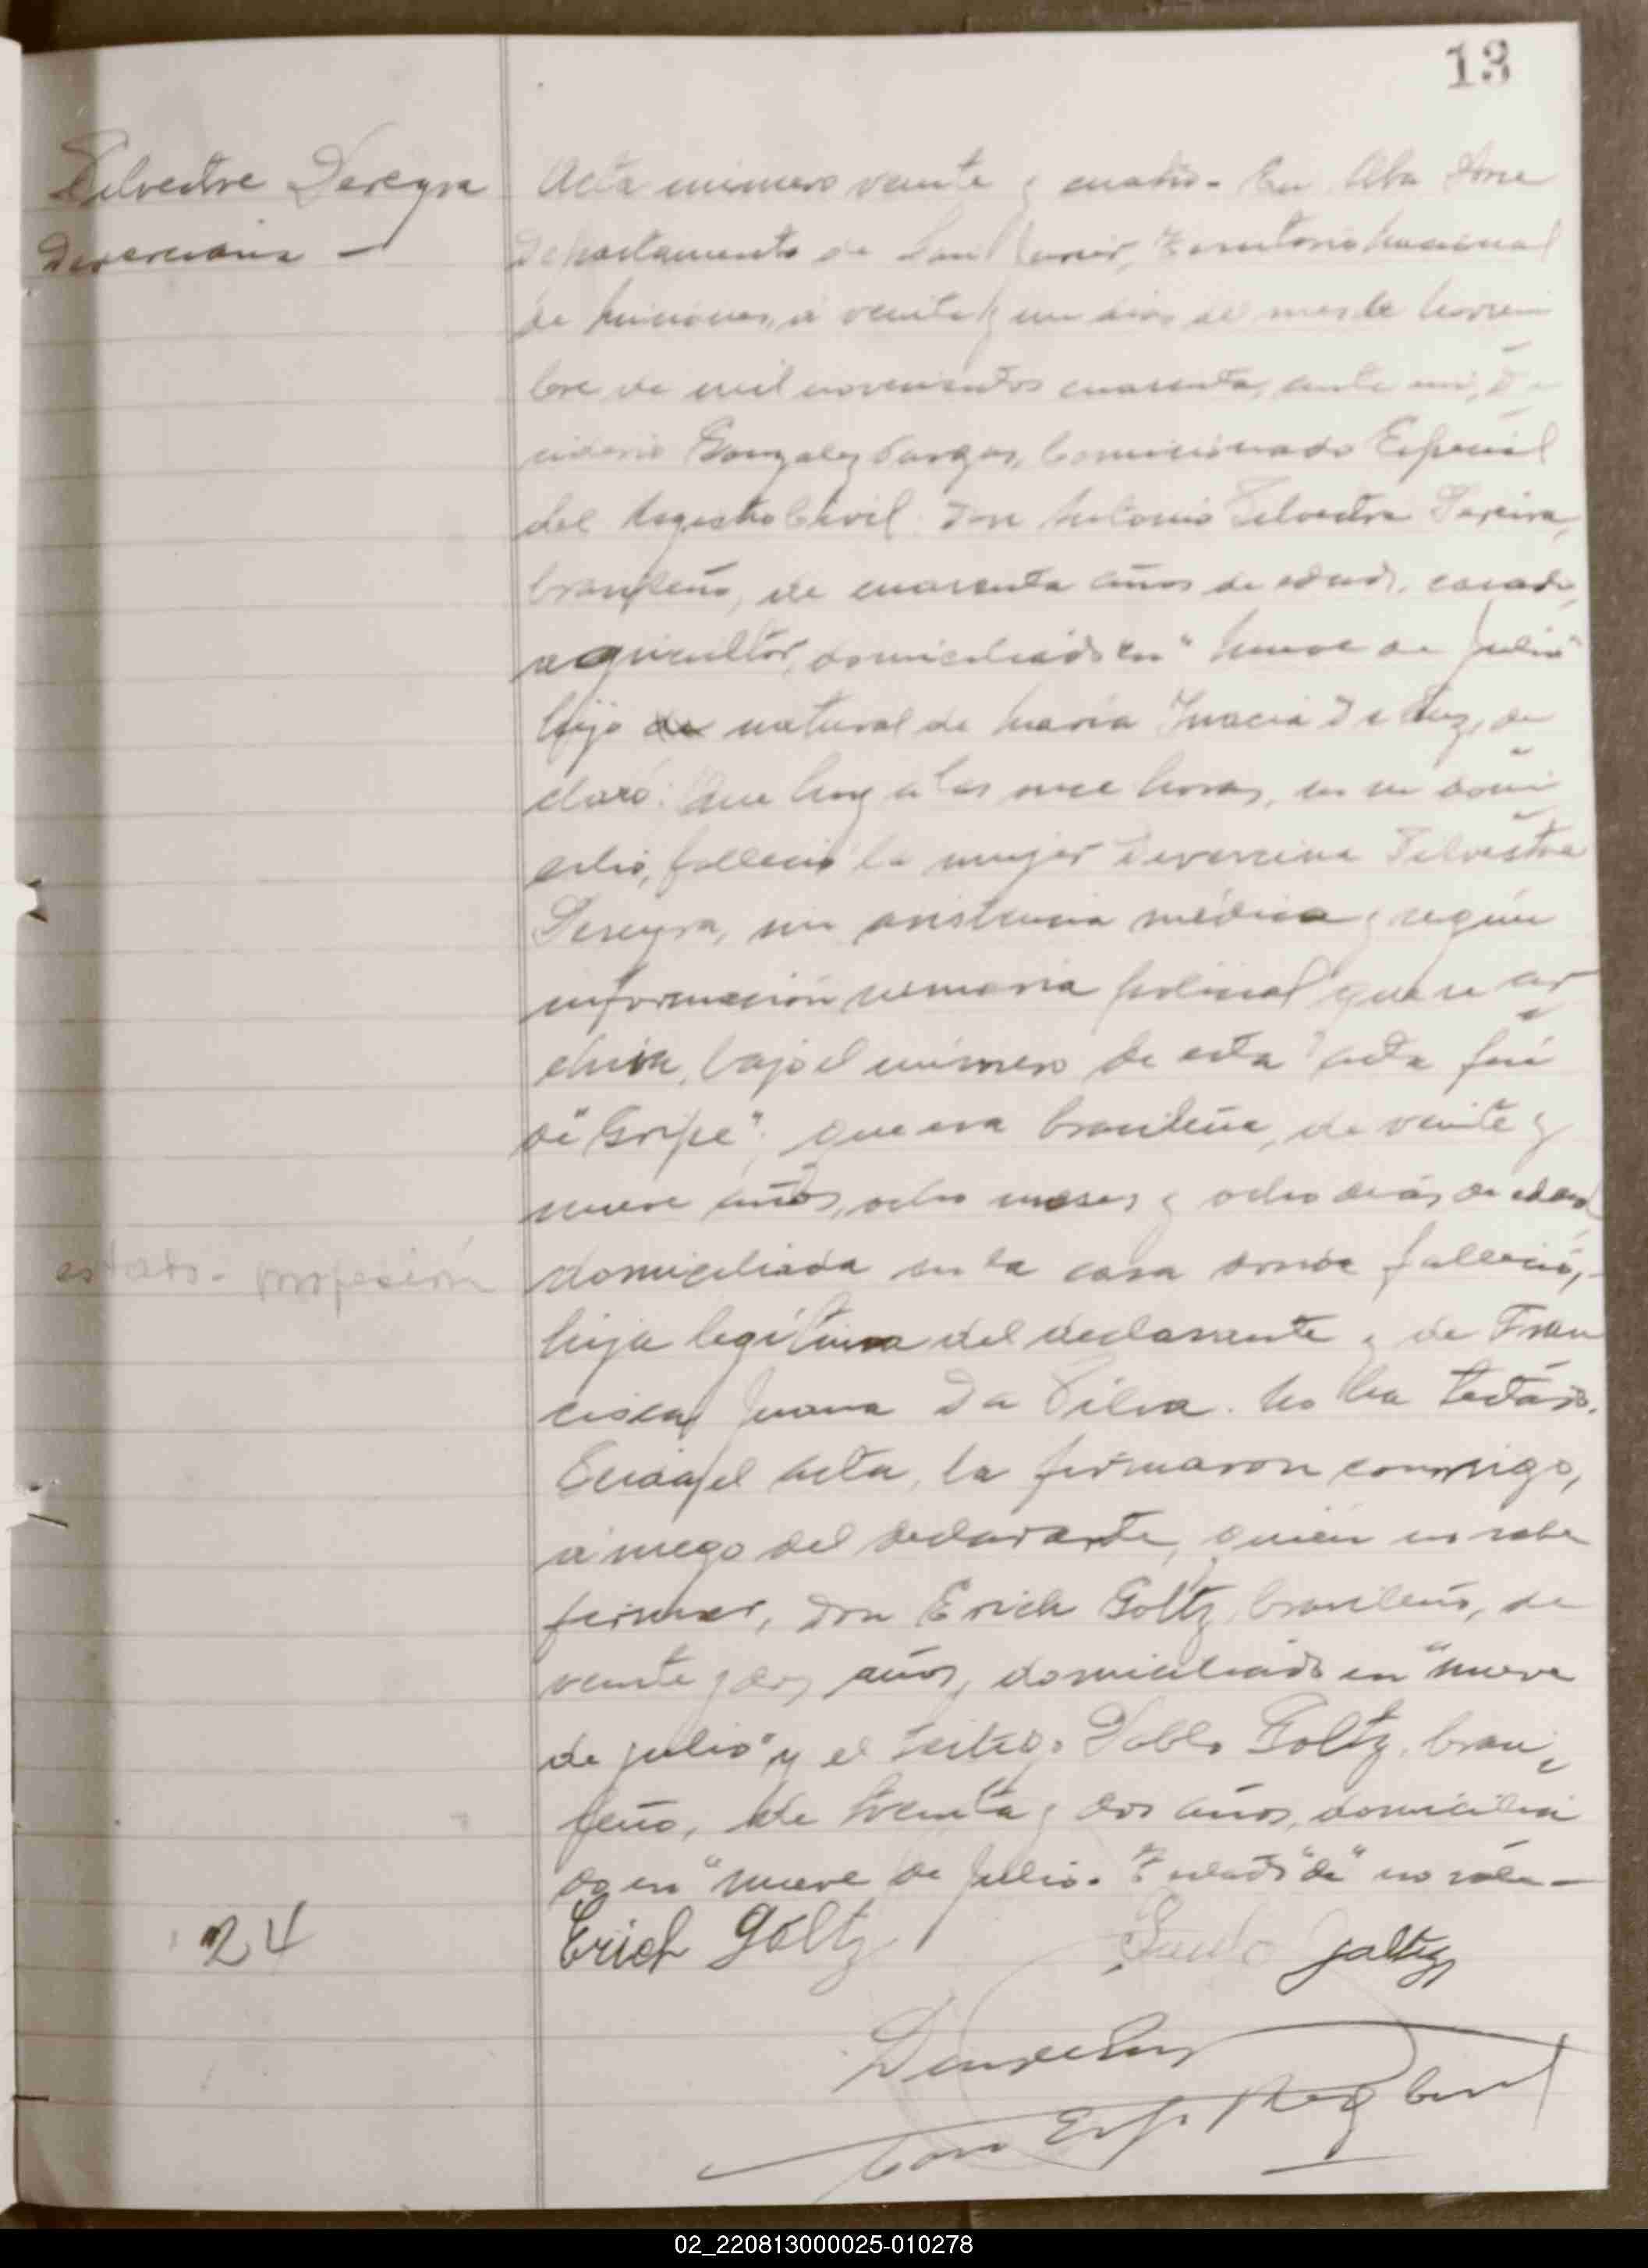 13
Silvestre Pereyra
Acta número veinte y cuatro. En Alba Posse
Departamento de San Javier, Territorio Nacional
de Misiones, a veinte y un dias del mes de Noviem
bre de mil novecientos cuarenta, ante mi, De
siderio Gonzalez Vargas, Comicionado Especial
del Registro Civil: Don Antonio Silvestre Pereira,
brasileño, de cuarenta años de edad, casado,
agricultor, domiciliado en "Nueve de Julio"
hijo de natural de María Inacia De Luz, de
claró: Que hoy a las once horas, en su domi
cilio, falleció la mujer Deversina Silvestre
Pereyra, sin asistencia médica y según
información sumaria policial que se ar
chiva, bajo el número de esta acta fué
de "Gripe"; que era brasileña, de veinte y
nueve años, ocho meses y ocho días de edad
estado - profesión
domiciliada en la casa donde falleció,-
hija legítima del declarante y de Fran
cisca Juana Da Silva. No ha testado.
Leida el acta, la firmaron conmigo,
a ruego del declarante, quién no sabe
firmar, Don Erich Goltz, brasileño, de
veinte y dos años, domiciliado en "Nueve
de Julio" y el testigo Pablo Goltz, brasi
leño, de treinta y dos años, domicilia
do en "Nueve de Julio. Testado "de" no vale-
24
Erich Goltz Paulo Goltz
Com Esp. Reg Civil
02_220813000025-010278